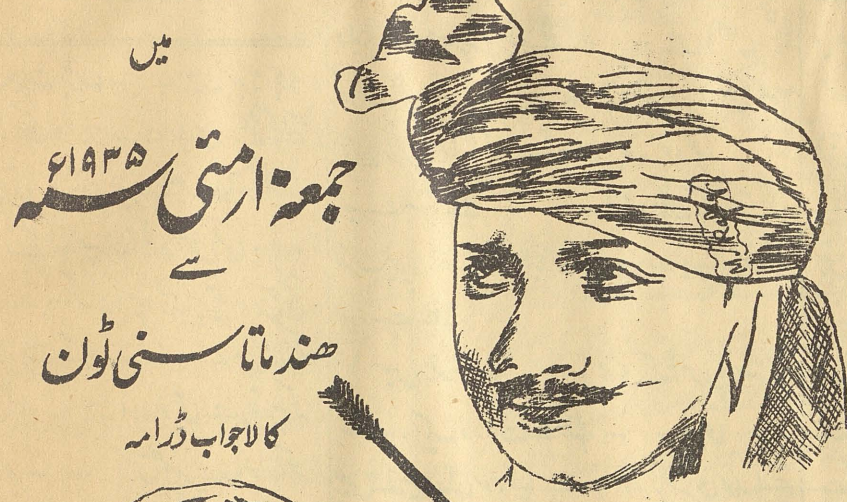 میں
جمعہ ۱۰ر مئی سنہ ۱۹۳۵ء
سے
ھندماتا سنی ٹون
کا لاجواب ڈرامہ